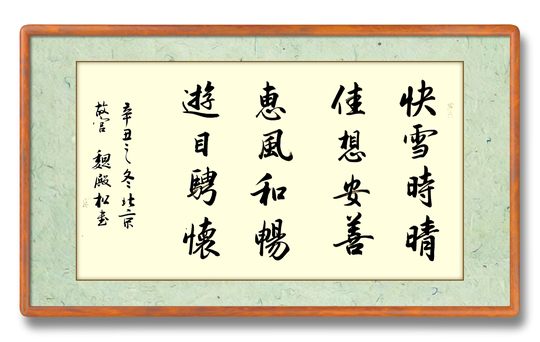 快雪時晴
佳想安善
惠風和暢
遊目騁懷
辛丑之冬北京
故宮 魏殿松書